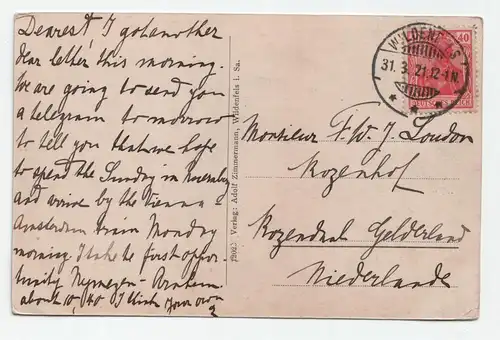 Dearest, I got another
dear letter this morning.
We are going to send you
a telegram to morrow
to tell you that we hope
to spend the Sunday in
and arrive by the Vienna
Amsterdam train Monday
morning. I take the first oppor-
tunity Nymegen - Arnhem
about 10,40 I kiss your own
Verlag: Adolf Zimmermann, Wildenfels i. Sa.
WILDENFELS
31.3.21.12-1N.
40
Monsieur F. W. J. London
Rozenhof
Rozendaal Gelderland
Niederlande